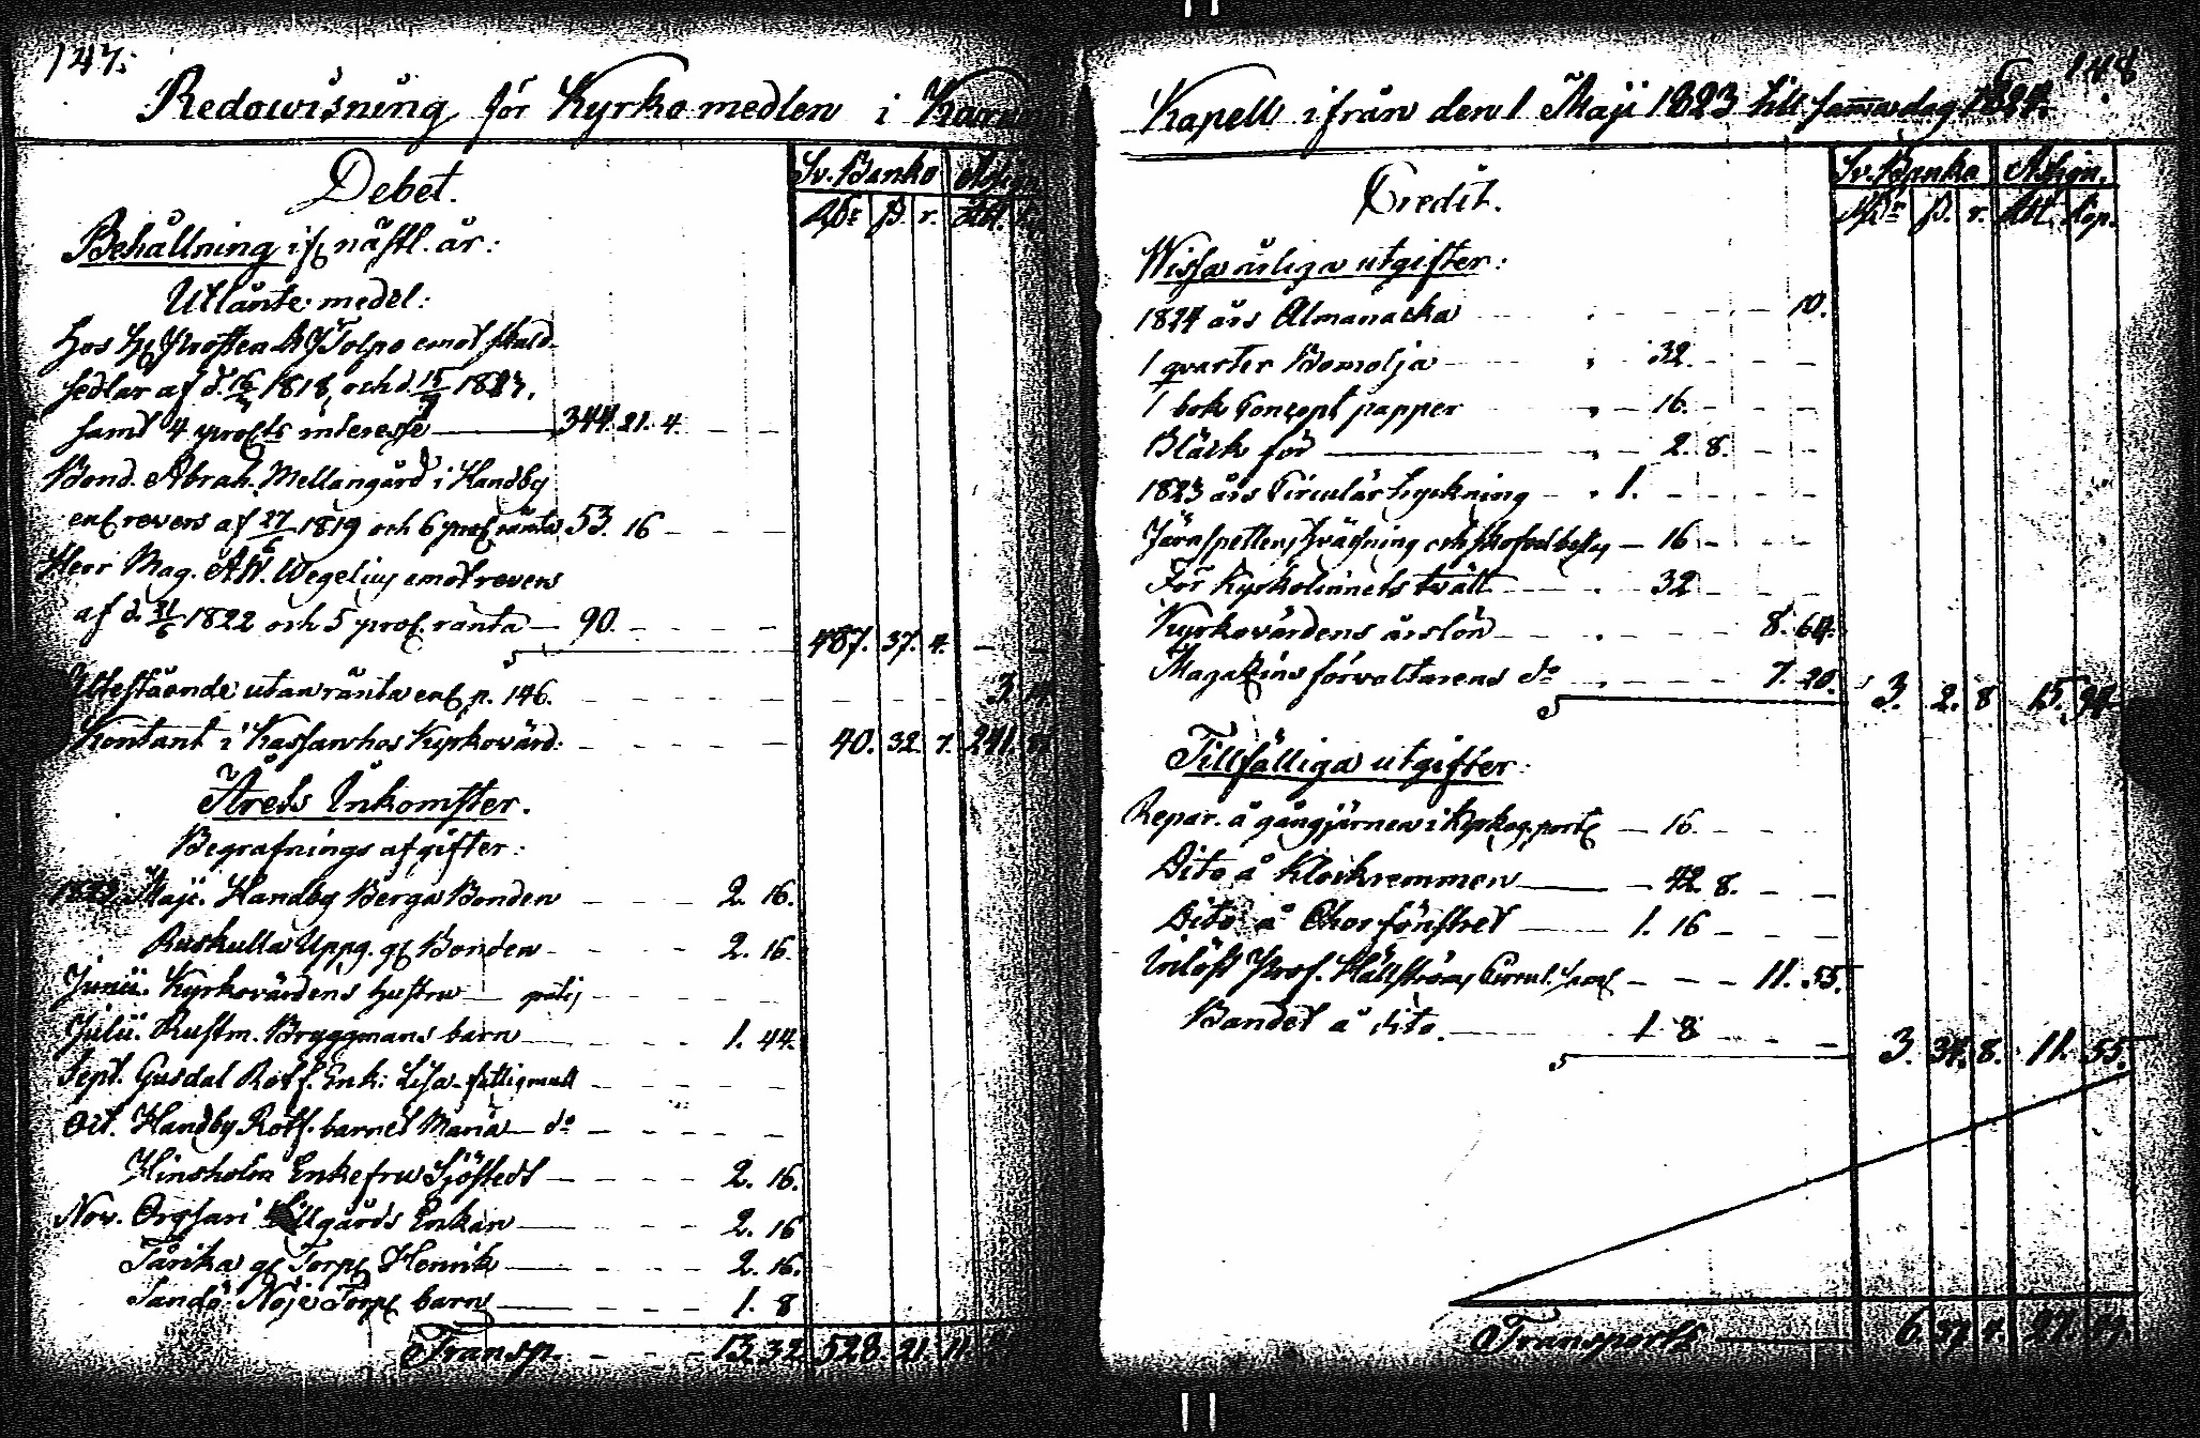 147.
Redowisning för Kyrko medlen i Karu
Debet.
Sv. Banko Assign.
Rdr ß. r. Rbl.
Behållning ifr. nästl. år:
Utlånte medel:
Hos Hr Prosten Tolpo emot skuld-
sedlar af d. 16 1818, och d. 15 1823,
samt 4 proCts interesse 344. 21. 4.
Bond. Abrah. Mellangård i Handby
enl. revers af 27/6 1819 och 6 proC. ränta 53. 16
Herr Mag. A.W. Wegelius emot revers
af d. 21/6 1822 och 5 proC. ränta 90.
487. 37. 4.
Utestående utan ränta enl. p. 146. 3.
Kontant i Kassan hos Kyrkovärd. 40. 32. 7. 241.
Årets Inkomster.
Begrafnings afgifter:
1823 Maji. Handby Berga Bonden 2. 16.
Ruskulla Uppg. gl. Bonden 2. 16.
Junii. Kyrkovärdens hustru
Julii. Rustm. Bryggmans barn 1. 44.
Sept. Gusdal Rotf. Enk: Lisa fattigmedl
Oct. Handby Rotf. barnet Maria do
Hinsholm Enkefru Sjöstedt 2. 16.
Nov. Orghari Lillgårds Enkan 2. 16
Tårika gl. Torp. Henrik 2. 16.
Sandö Nöje Torp. barn 1. 8
Transp. 13. 32 528. 21. 11.
148
Kapell ifrån den 1 Maji 1823 till samma dag 1824.
Credit.
Sv. Banko Assign.
Rdr ß. r. Rbl. Kop.
Wissa årliga utgifter:
1824 års Almanacka 10.
1 qvarter Bomolja 32.
1 bok Concept papper 16.
Bläck för 2. 8.
1823 års Circulär tryckning 1.
Järnspettens 16
För Kyrkolinnets tvätt 32
Kyrkovärdens årslön 8. 64.
Magazins förvaltarens do 7. 20.
3. 2. 8 15. 94
Tillfälliga utgifter:
Repar. å gångjärnen i Kyrkog. port. 16.
Dito å Klockremmen 42. 8.
Dito å Chor fönstret 1. 16
Inlöst Prof. Hällströms Circul. Saml. 11. 55.
Bandet å dito. 1 8
3. 34. 8. 11. 55.
Transport 6. 37. 4. 27. 49.